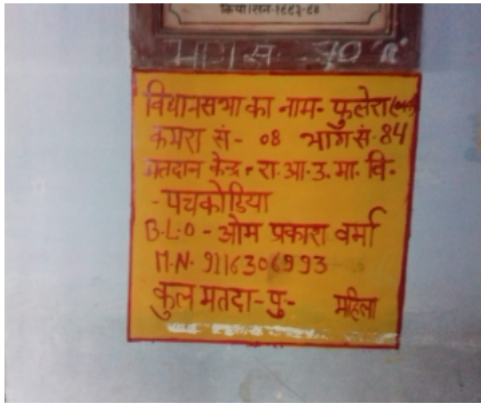 क्रियासन-१९९३-९४
भाग स. 70
विधानसभा का नाम- फुलेरा
कमरा सं- 08 भाग सं- 84
मतदान केन्द्र- रा.आ.उ.मा. वि-
-पचकोडिया
B.L.O - ओम प्रकाश वर्मा
M.N. 9116306993
कुल मतदा-पु- महिला